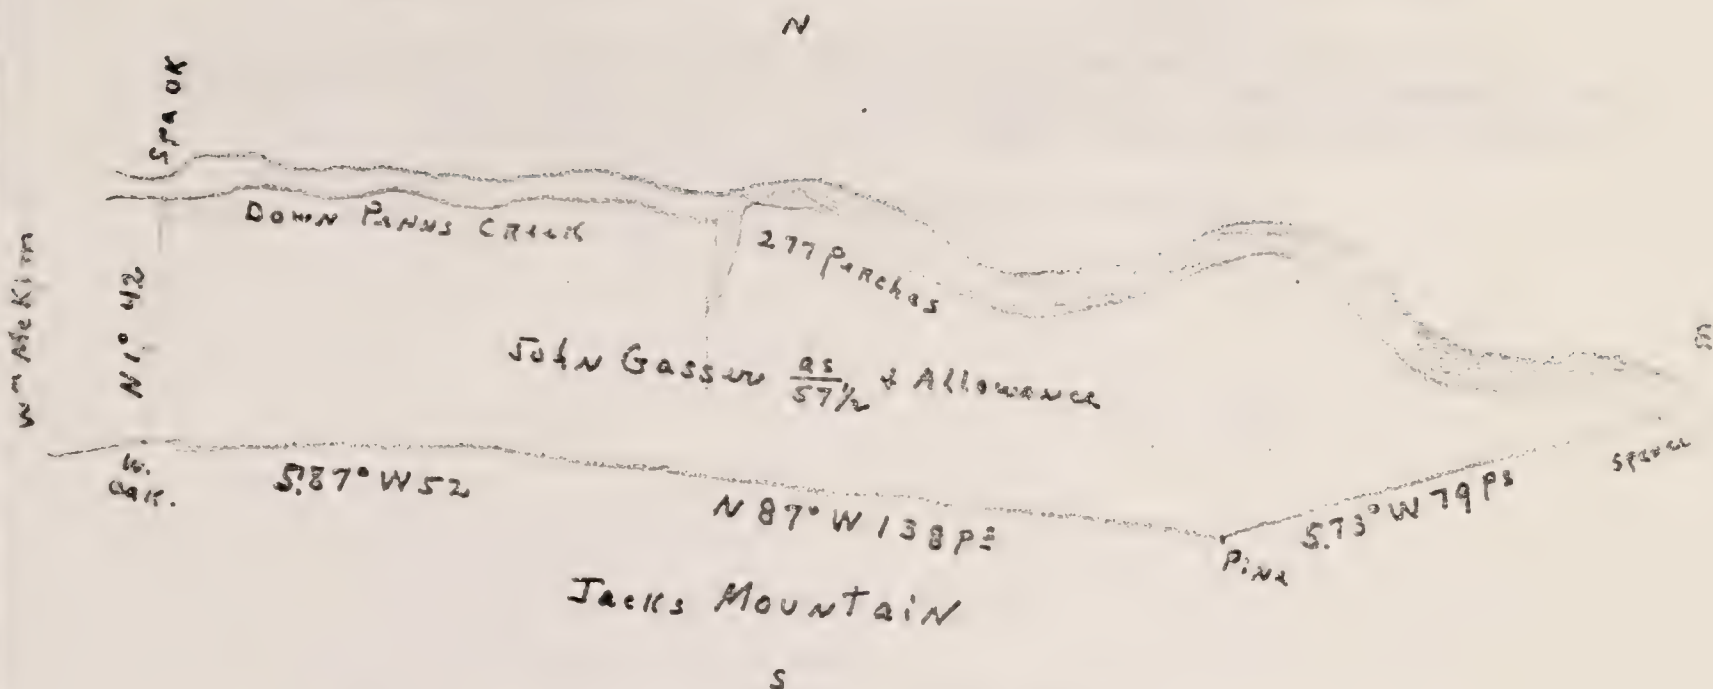 N
SPA OK
DOWN PENNS CREEK
277 PERChes
Wm
N 1° 42
John Gasser as/57 1/2 & Allowance
W. Oak.
S.87° W 52
N 87° W 138 Ps
Pine
S.73° W 79 Ps
Spruce
Jacks MOUNTAiN
S